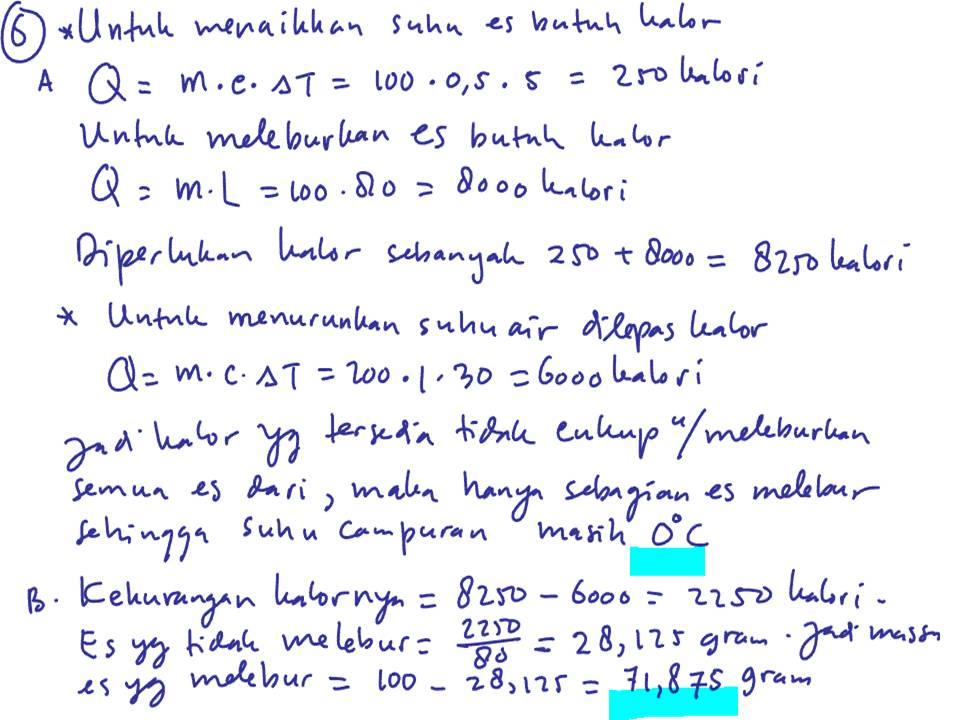 6 * Untuk menaikkan suhu es butuh kalor
A Q = m.c.ΔT = 100 . 0,5 . 5 = 250 kalori
Untuk meleburkan es butuh kalor
Q = m.L = 100 . 80 = 8000 kalori
Diperlukan kalor sebanyak 250 + 8000 = 8250 kalori
* Untuk menurunkan suhu air dilepas kalor
Q = m.c.ΔT = 200 . 1 . 30 = 6000 kalori
Jadi kalor yg tersedia tidak cukup u/meleburkan
semua es dari, maka hanya sebagian es melebur
sehingga suhu campuran masih 0°C
B. Kekurangan kalornya = 8250 – 6000 = 2250 kalori.
Es yg tidak melebur = 2250/80 = 28,125 gram. Jadi massa
es yg melebur = 100 – 28,125 = 71,875 gram